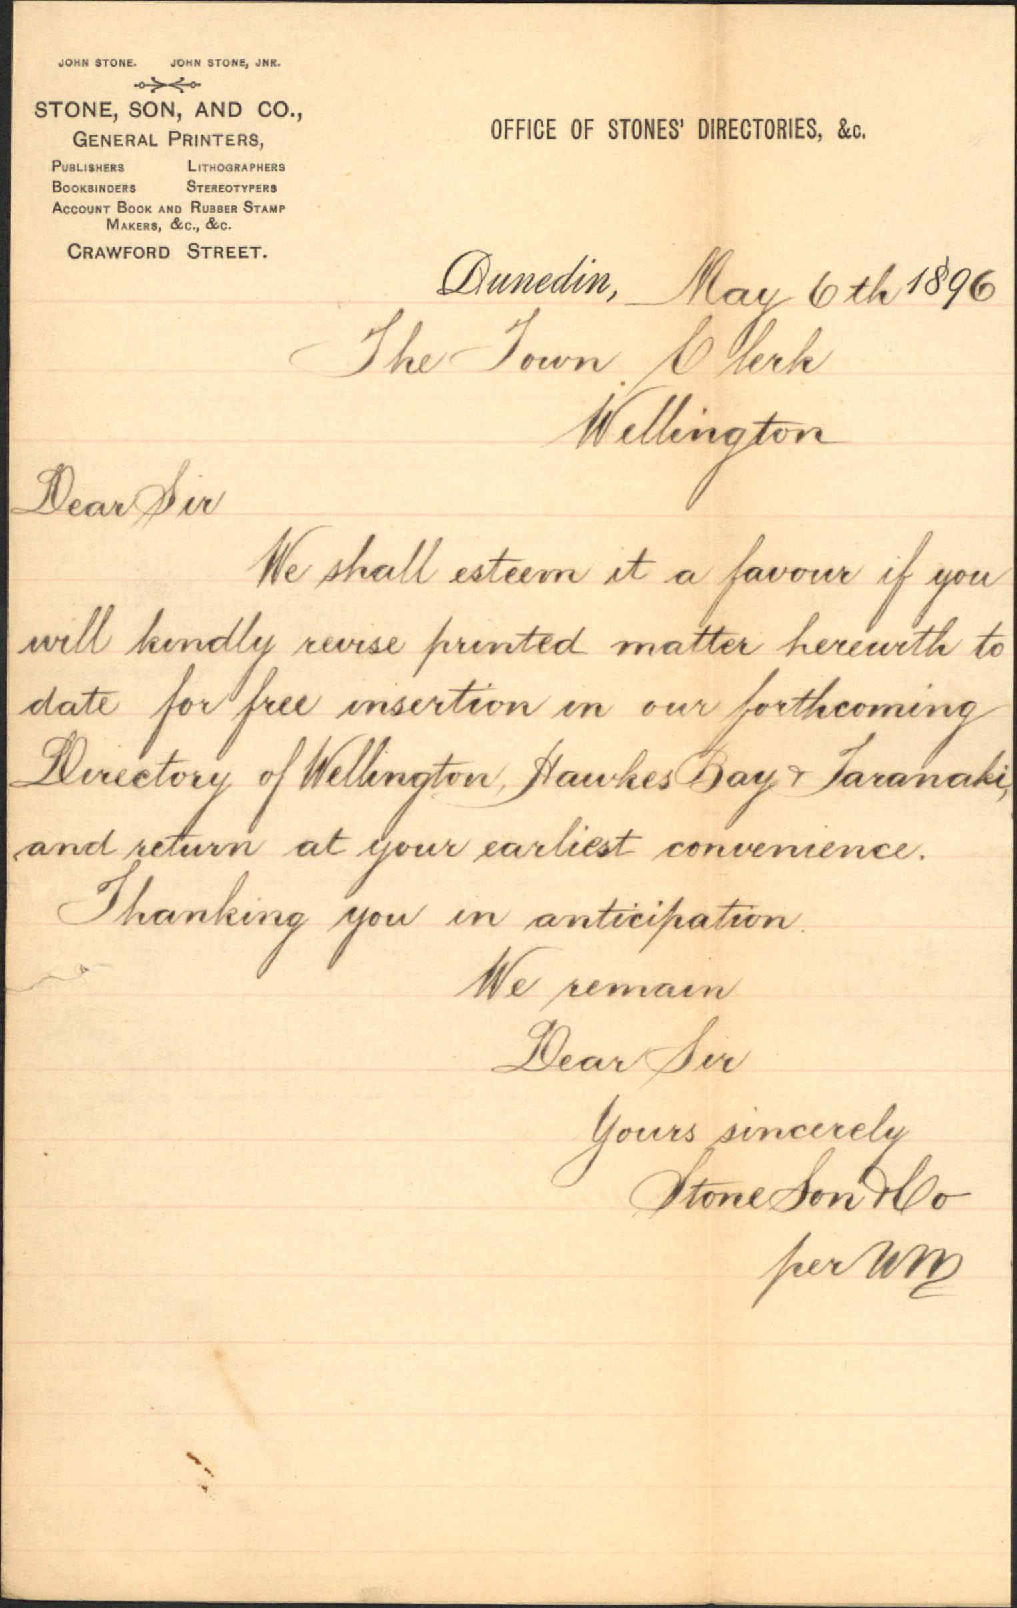 JOHN STONE. JOHN STONE, JNR.
STONE, SON, AND CO.,
GENERAL PRINTERS,
PUBLISHERS LITHOGRAPHERS
BOOKBINDERS STEREOTYPERS
ACCOUNT BOOK AND RUBBER STAMP
MAKERS, &c., &c.
CRAWFORD STREET.
OFFICE OF STONES' DIRECTORIES, &c.
Dunedin, May 6th 1896
The Town Clerk
Wellington
Dear Sir
We shall esteem it a favour if you
will kindly revise printed matter herewith to
date for free insertion in our forthcoming
Directory of Wellington, Hawkes Bay & Taranaki,
and return at your earliest convenience.
Thanking you in anticipation.
We remain
Dear Sir
Yours sincerely
Stone Son & Co
per WM